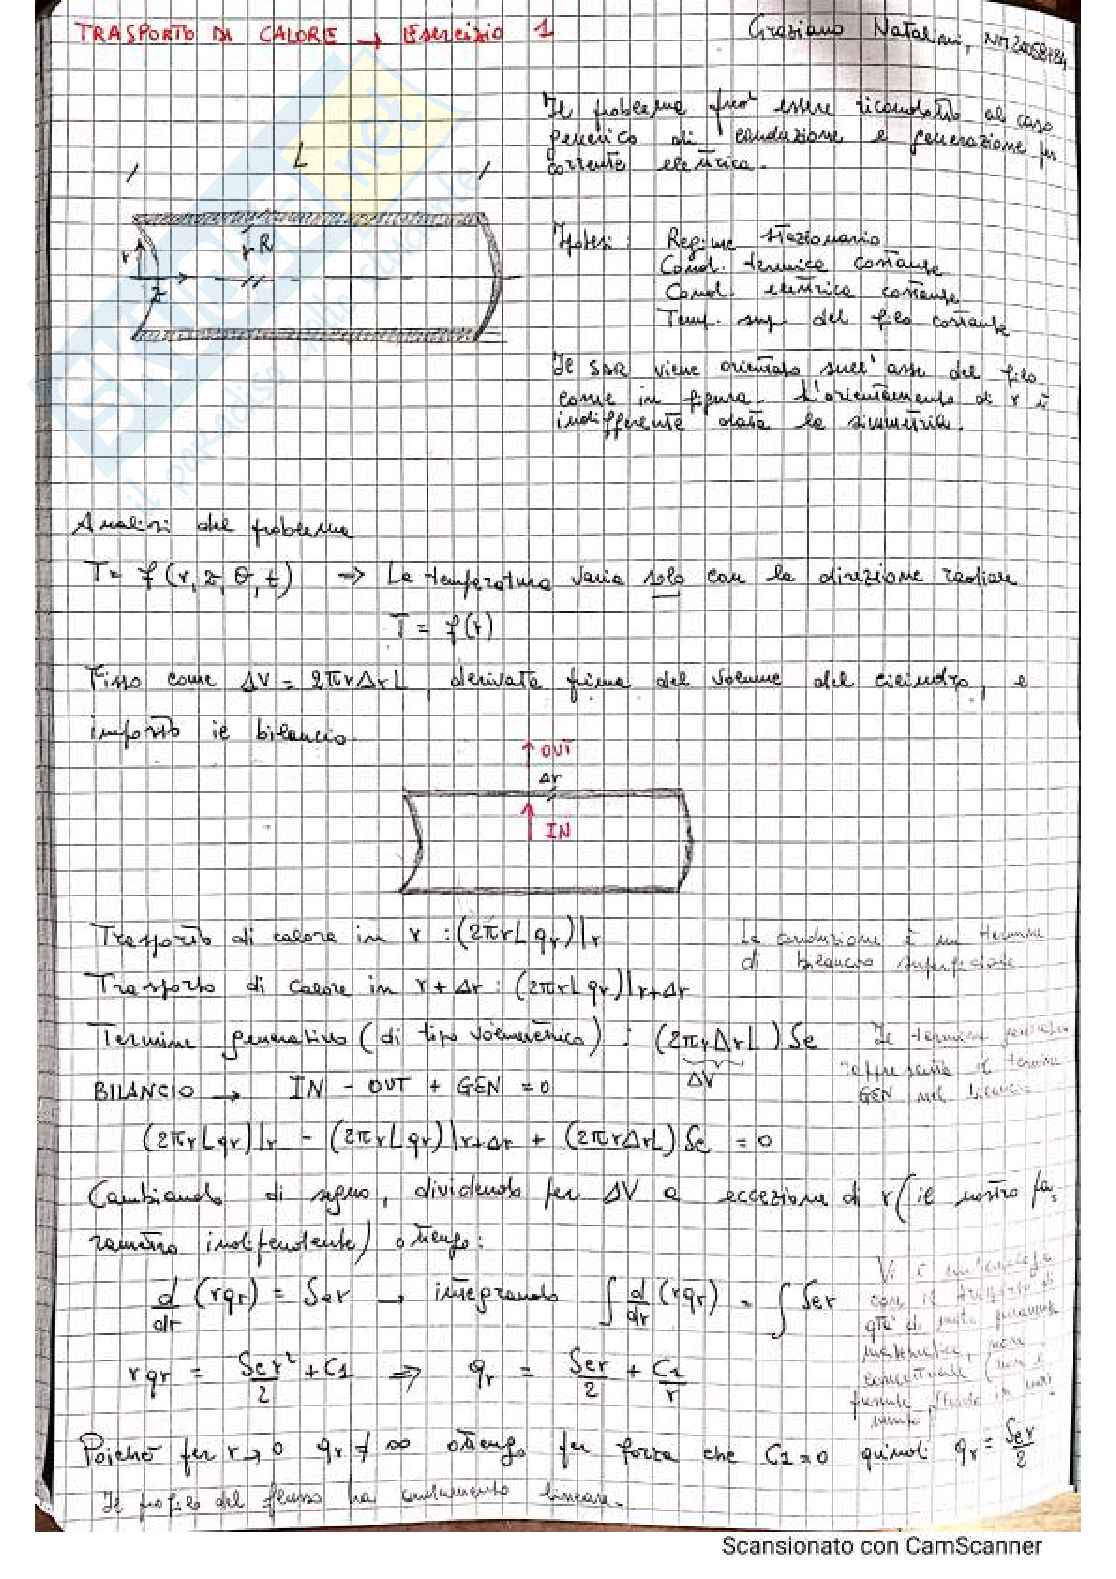 TRASPORTO DI CALORE → Esercizio 1
Graziano Natalini,
Il problema può essere ricondotto al caso
generico di conduzione e generazione per
corrente elettrica.
L
R
r
z
Ipotesi: Regime stazionario
Cond. termica costante
Cond. elettrica costante
Temp. sup. del filo costante
Il SDR viene orientato sull'asse del filo
come in figura. L'orientamento di r è
indifferente data la simmetria.
Analisi del problema
T = f(r, z, θ, t) → La temperatura varia solo con la direzione radiale
T = f(r)
Fisso come ΔV = 2πrΔrL, derivata prima del volume del cilindro, e
imposto il bilancio.
OUT
Δr
IN
Trasporto di calore in r : (2πrLqr)|r
La conduzione è un termine
di bilancio superficiale
Trasporto di calore in r+Δr : (2πrLqr)|r+Δr
Termine generativo (di tipo volumetrico) : (2πrΔrL) Se
ΔV
Il termine
rappresenta il termine
GEN nel bilancio
BILANCIO → IN - OUT + GEN = 0
(2πrLqr)|r - (2πrLqr)|r+Δr + (2πrΔrL) Se = 0
Cambiando di segno, dividendo per ΔV a eccezione di r (il nostro pa-
rametro indipendente) ottengo:
d/dr (rqr) = Ser → integrando ∫ d/dr (rqr) = ∫ Ser
Vi è
con il trasporto di
qtà di moto puramente
matematica, non
concettuale
rqr = Ser²/2 + C1 ⇒ qr = Ser/2 + C1/r
Poiché per r→0 qr ≠ ∞ ottengo per forza che C1=0 quindi qr = Ser/2
Il profilo del flusso ha andamento lineare.
SKUOLA.net
il paradiso dello studente
Scansionato con CamScanner